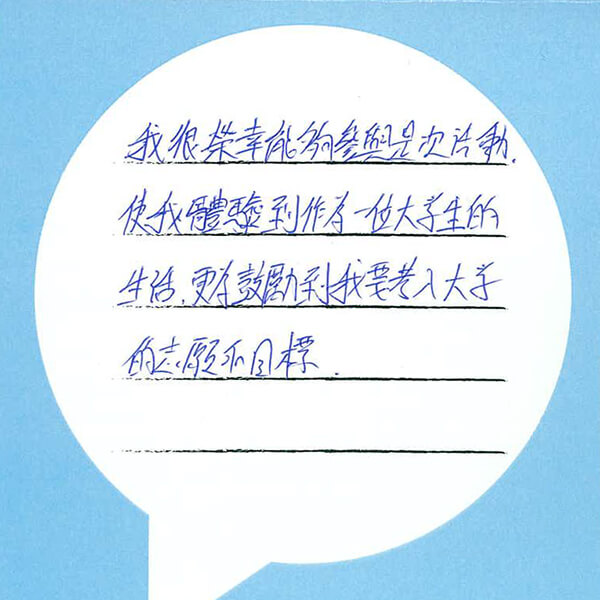 我很榮幸能夠參與是次活動.
使我體驗到作為一位大学生的
生活,更有鼓勵到我要考入大学
的志願和目標.